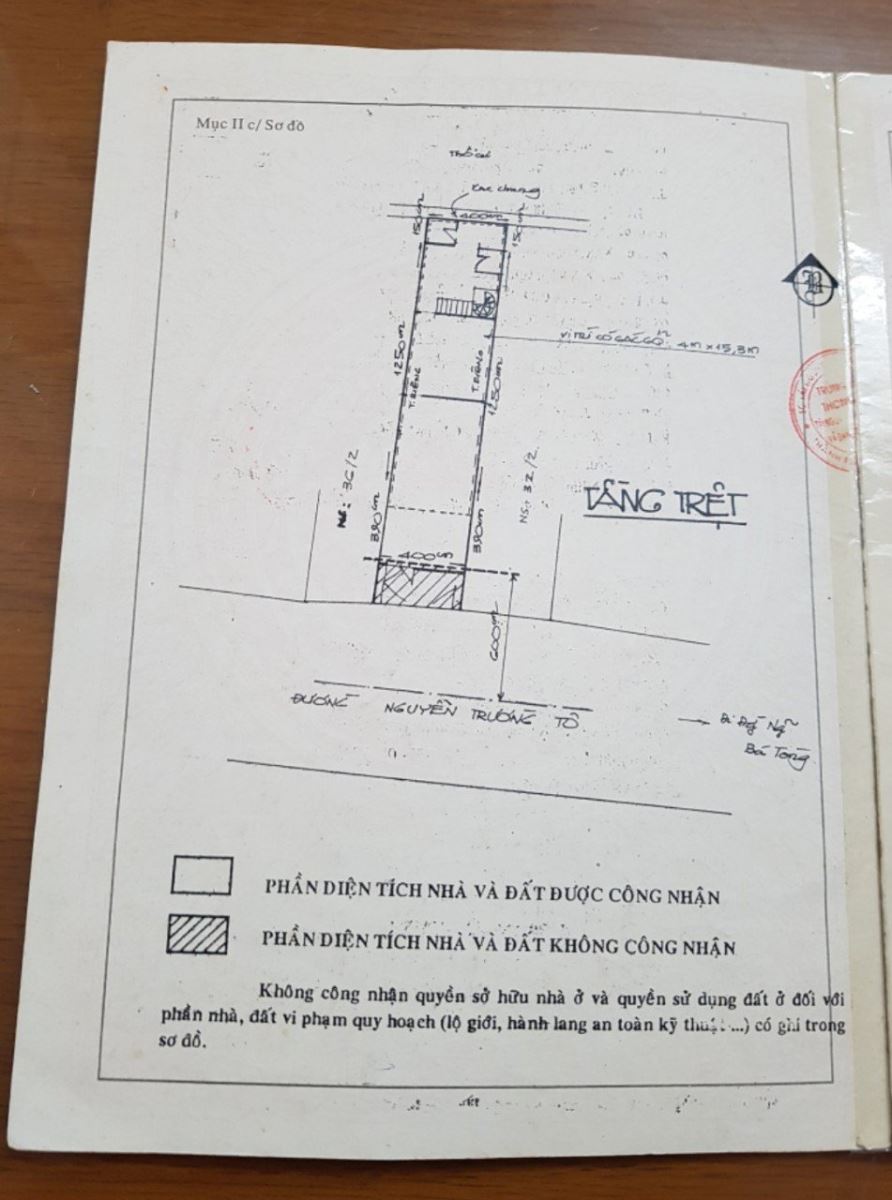 Mục II c/ Sơ đồ
400cm
150cm
150cm
VỊ TRÍ CÓ GÁC GỖ 4m x 15,3m
1250cm
T. RIÊNG
T. RIÊNG
1250cm
NS: 36/2
NS: 32/2
TẦNG TRỆT
390cm
390cm
400cm
600cm
ĐƯỜNG NGUYỄN TRƯỜNG TỘ
PHẦN DIỆN TÍCH NHÀ VÀ ĐẤT ĐƯỢC CÔNG NHẬN
PHẦN DIỆN TÍCH NHÀ VÀ ĐẤT KHÔNG CÔNG NHẬN
Không công nhận quyền sở hữu nhà ở và quyền sử dụng đất ở đối với
phần nhà, đất vi phạm quy hoạch (lộ giới, hành lang an toàn kỹ thuật ...) có ghi trong
sơ đồ.